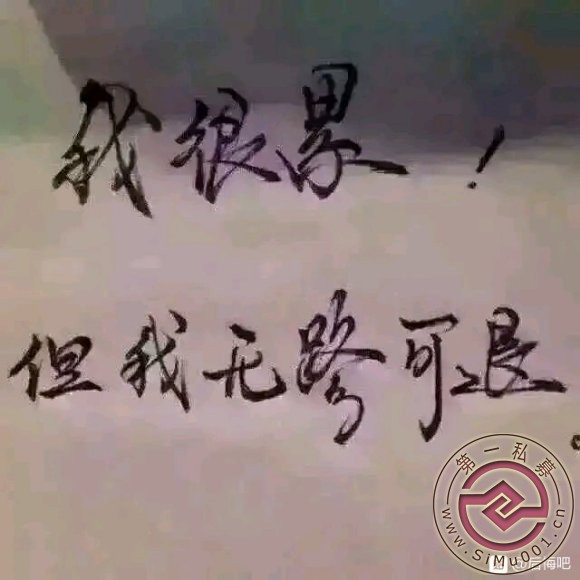 我很累！
但我无路可退。
第一私募
www.SiMu001.cn
@后悔吧